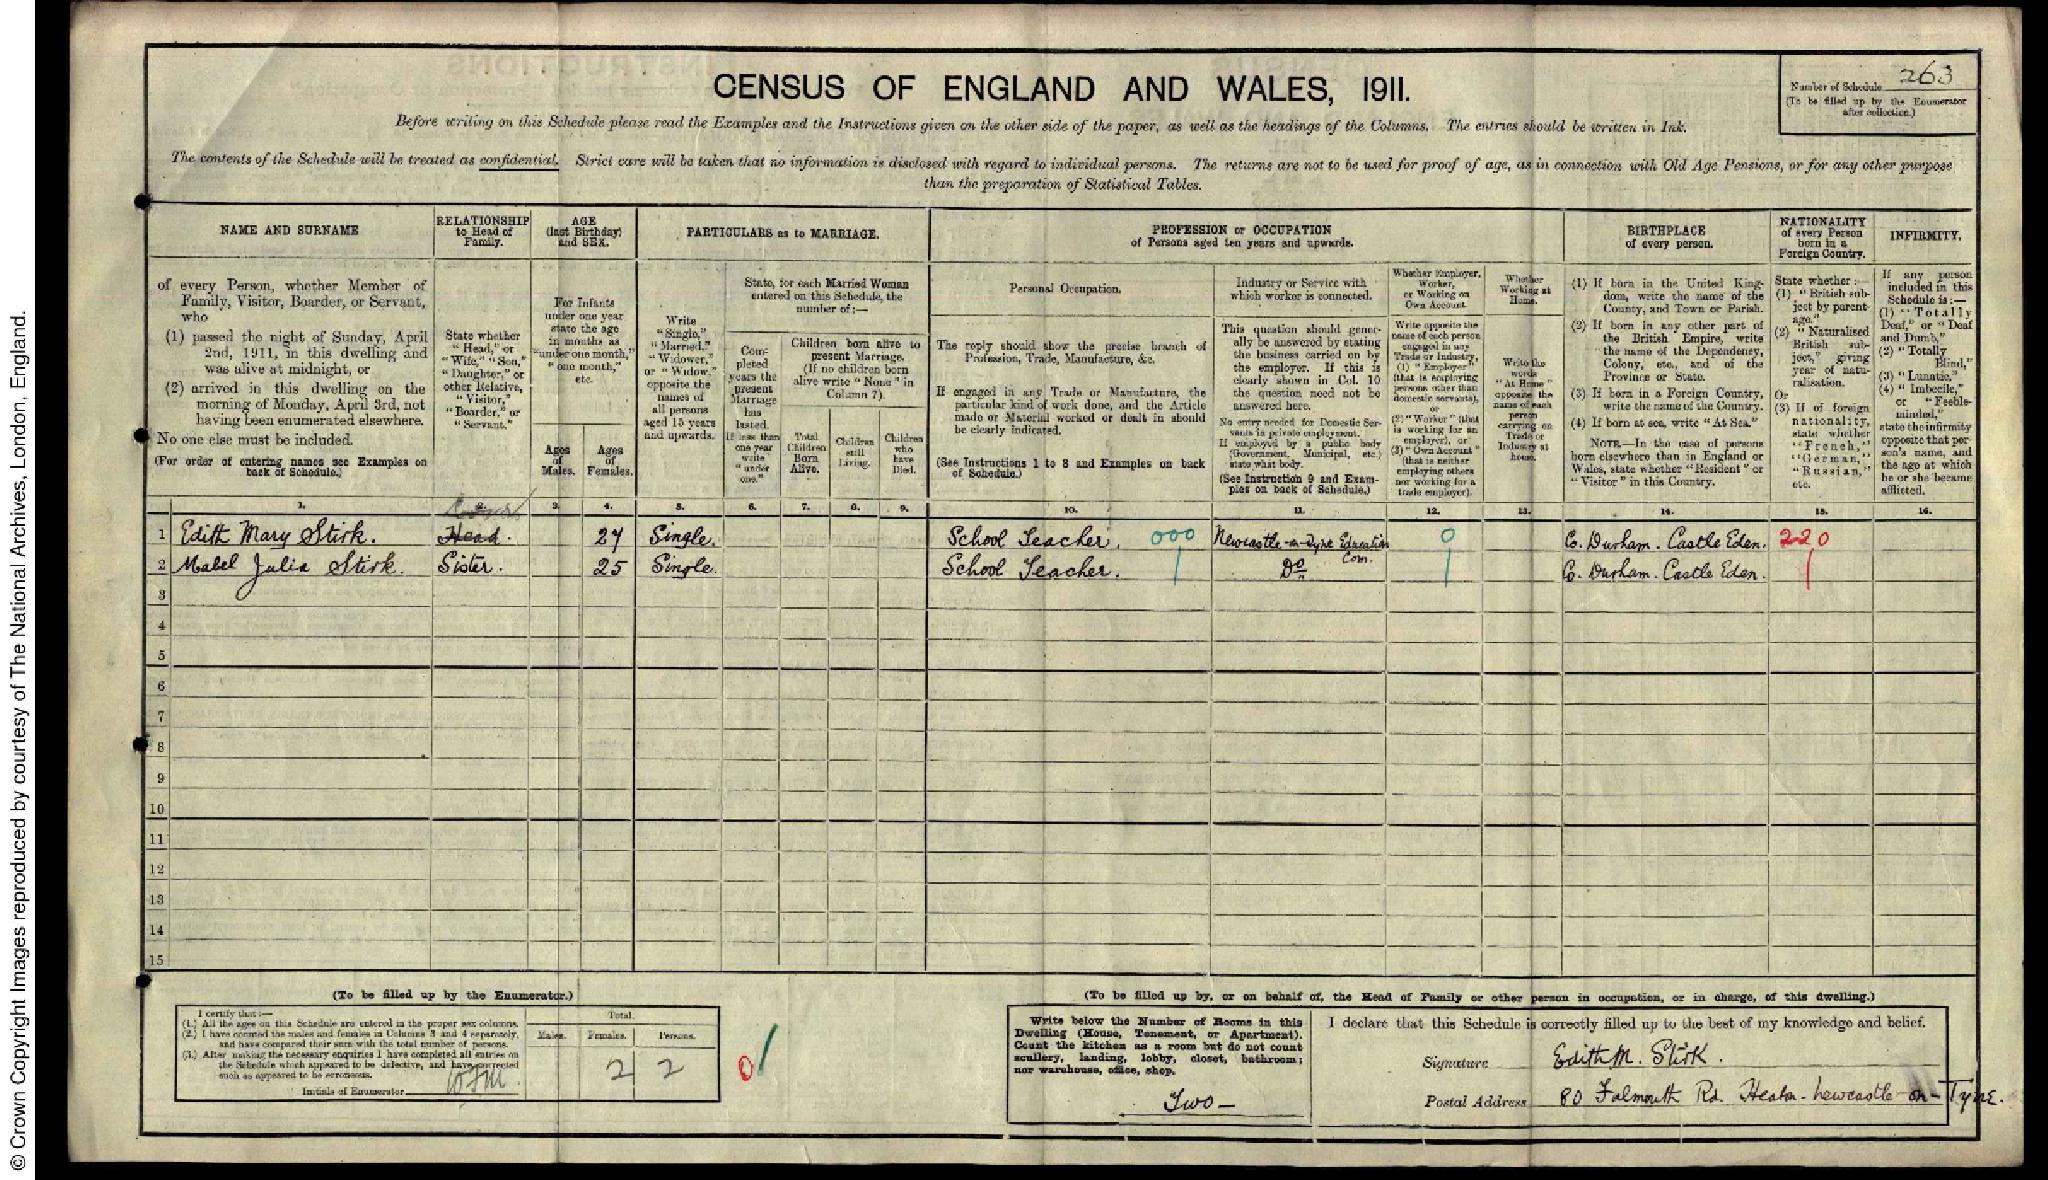 CENSUS OF ENGLAND AND WALES, 1911.
Number of Schedule 263
(To be filled up by the Enumerator
after collection.)
Before writing on this Schedule please read the Examples and the Instructions given on the other side of the paper, as well as the headings of the Columns. The entries should be written in Ink.
The contents of the Schedule will be treated as confidential. Strict care will be taken that no information is disclosed with regard to individual persons. The returns are not to be used for proof of age, as in connection with Old Age Pensions, or for any other purpose
than the preparation of Statistical Tables.
NAME AND SURNAME
of every Person, whether Member of
Family, Visitor, Boarder, or Servant,
who
(1) passed the night of Sunday, April
2nd, 1911, in this dwelling and
was alive at midnight, or
(2) arrived in this dwelling on the
morning of Monday, April 3rd, not
having been enumerated elsewhere.
No one else must be included.
(For order of entering names see Examples on
back of Schedule.)
RELATIONSHIP
to Head of
Family.
State whether
"Head," or
"Wife," "Son,"
"Daughter," or
other Relative,
"Visitor,"
"Boarder," or
"Servant."
AGE
(last Birthday)
and SEX.
For Infants
under one year
state the age
in months as
"under one month,"
"one month,"
etc.
Ages
of
Males.
Ages
of
Females.
PARTICULARS as to MARRIAGE.
Write
"Single,"
"Married,"
"Widower,"
or "Widow,"
opposite the
names of
all persons
aged 15 years
and upwards.
State, for each Married Woman
entered on this Schedule, the
number of:—
Com-
pleted
years the
present
Marriage
has
lasted.
If less than
one year
write
"under
one."
Children born alive to
present Marriage.
(If no children born
alive write "None" in
Column 7).
Total
Children
Born
Alive.
Children
still
Living.
Children
who
have
Died.
PROFESSION or OCCUPATION
of Persons aged ten years and upwards.
Personal Occupation.
The reply should show the precise branch of
Profession, Trade, Manufacture, &c.
If engaged in any Trade or Manufacture, the
particular kind of work done, and the Article
made or Material worked or dealt in should
be clearly indicated.
(See Instructions 1 to 8 and Examples on back
of Schedule.)
Industry or Service with
which worker is connected.
This question should gener-
ally be answered by stating
the business carried on by
the employer. If this is
clearly shown in Col. 10
the question need not be
answered here.
No entry needed for Domestic Ser-
vants in private employment.
If employed by a public body
(Government, Municipal, etc.)
state what body.
(See Instruction 9 and Exam-
ples on back of Schedule.)
Whether Employer,
Worker,
or Working on
Own Account.
Write opposite the
name of each person
engaged in any
Trade or Industry,
(1) "Employer"
(that is employing
persons other than
domestic servants),
or
(2) "Worker" (that
is working for an
employer), or
(3) "Own Account"
(that is neither
employing others
nor working for a
trade employer).
Whether
Working at
Home.
Write the
words
"At Home"
opposite the
name of each
person
carrying on
Trade or
Industry at
home.
BIRTHPLACE
of every person.
(1) If born in the United King-
dom, write the name of the
County, and Town or Parish.
(2) If born in any other part of
the British Empire, write
the name of the Dependency,
Colony, etc., and of the
Province or State.
(3) If born in a Foreign Country,
write the name of the Country.
(4) If born at sea, write "At Sea."
NOTE.—In the case of persons
born elsewhere than in England or
Wales, state whether "Resident" or
"Visitor" in this Country.
NATIONALITY
of every Person
born in a
Foreign Country.
State whether:—
(1) "British sub-
ject by parent-
age."
(2) "Naturalised
British sub-
ject," giving
year of natu-
ralisation.
Or
(3) If of foreign
nationality,
state whether
"French,"
"German,"
"Russian,"
etc.
INFIRMITY.
If any person
included in this
Schedule is:—
(1) "Totally
Deaf," or "Deaf
and Dumb,"
(2) "Totally
Blind,"
(3) "Lunatic,"
(4) "Imbecile,"
or "Feeble-
minded,"
state the infirmity
opposite that per-
son's name, and
the age at which
he or she became
afflicted.
1. 2. 3. 4. 5. 6. 7. 8. 9. 10. 11. 12. 13. 14. 15. 16.
1 Edith Mary Stirk. Head. 27 Single. School Teacher. 000 Newcastle-on-Tyne Education Com. 0 Co. Durham. Castle Eden. 220
2 Mabel Julia Stirk. Sister. 25 Single. School Teacher. Do Co. Durham. Castle Eden.
3
4
5
6
7
8
9
10
11
12
13
14
15
(To be filled up by the Enumerator.)
I certify that:—
(1.) All the ages on this Schedule are entered in the proper sex columns.
(2.) I have counted the males and females in Columns 3 and 4 separately,
and have compared their sum with the total number of persons.
(3.) After making the necessary enquiries I have completed all entries on
the Schedule which appeared to be defective, and have corrected
such as appeared to be erroneous.
Initials of Enumerator
Total.
Males. Females. Persons.
2 2
0
(To be filled up by, or on behalf of, the Head of Family or other person in occupation, or in charge, of this dwelling.)
Write below the Number of Rooms in this
Dwelling (House, Tenement, or Apartment).
Count the kitchen as a room but do not count
scullery, landing, lobby, closet, bathroom;
nor warehouse, office, shop.
Two—
I declare that this Schedule is correctly filled up to the best of my knowledge and belief.
Signature Edith M. Stirk.
Postal Address 80 Falmouth Rd. Heaton. newcastle-on-Tyne.
© Crown Copyright Images reproduced by courtesy of The National Archives, London, England.